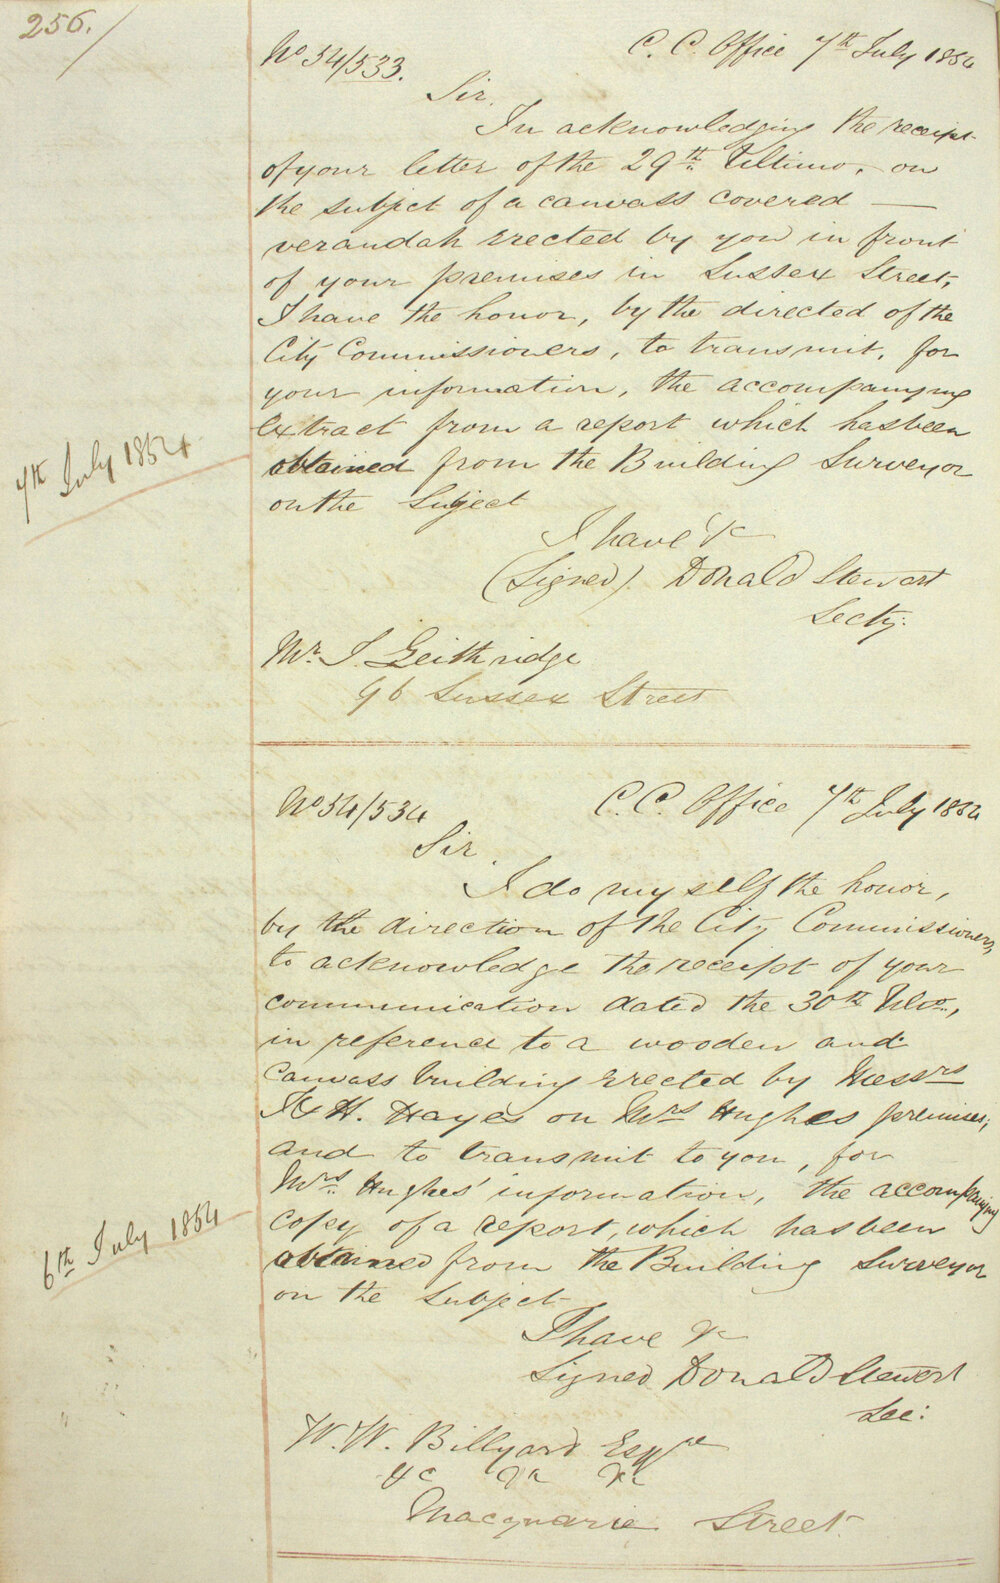 256.
No 54/533.
C. C. Office 7th July 1854
Sir,
In acknowledging the receipt
of your letter of the 29th Ultimo, on
the subject of a canvass covered
verandah erected by you in front
of your premises in Sussex Street,
I have the honor, by the directed of the
City Commissioners, to transmit, for
your information, the accompanying
extract from a report which has been
obtained from the Building Surveyor
on the Subject
7th July 1854
I have &c
(Signed) Donald Stewart
Secty.
Mr. J. Geithridge
96 Sussex Street
No 54/534
C. C. Office 7th July 1854
Sir,
I do myself the honor,
by the direction of the City Commissioners,
to acknowledge the receipt of your
communication dated the 30th Ulto.,
in reference to a wooden and
canvass building erected by Messrs
H. Hayes on Mrs Hughes premises;
and to transmit to you, for
Mrs. Hughes' information, the accompanying
copy of a report, which has been
obtained from the Building Surveyor
on the subject
6th July 1854
I have &c
Signed Donald Stewart
Sec:
W. W. Billyard Esqre
&c &c &c
Macquarie Street